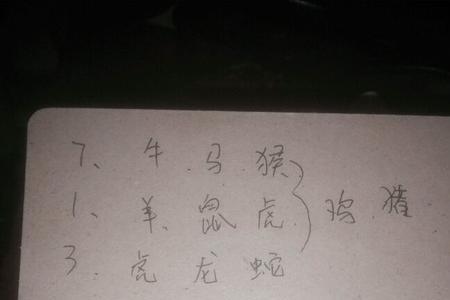 7、牛 马 猴
1、羊 鼠 虎 } 鸡 猪
3、虎 龙 蛇